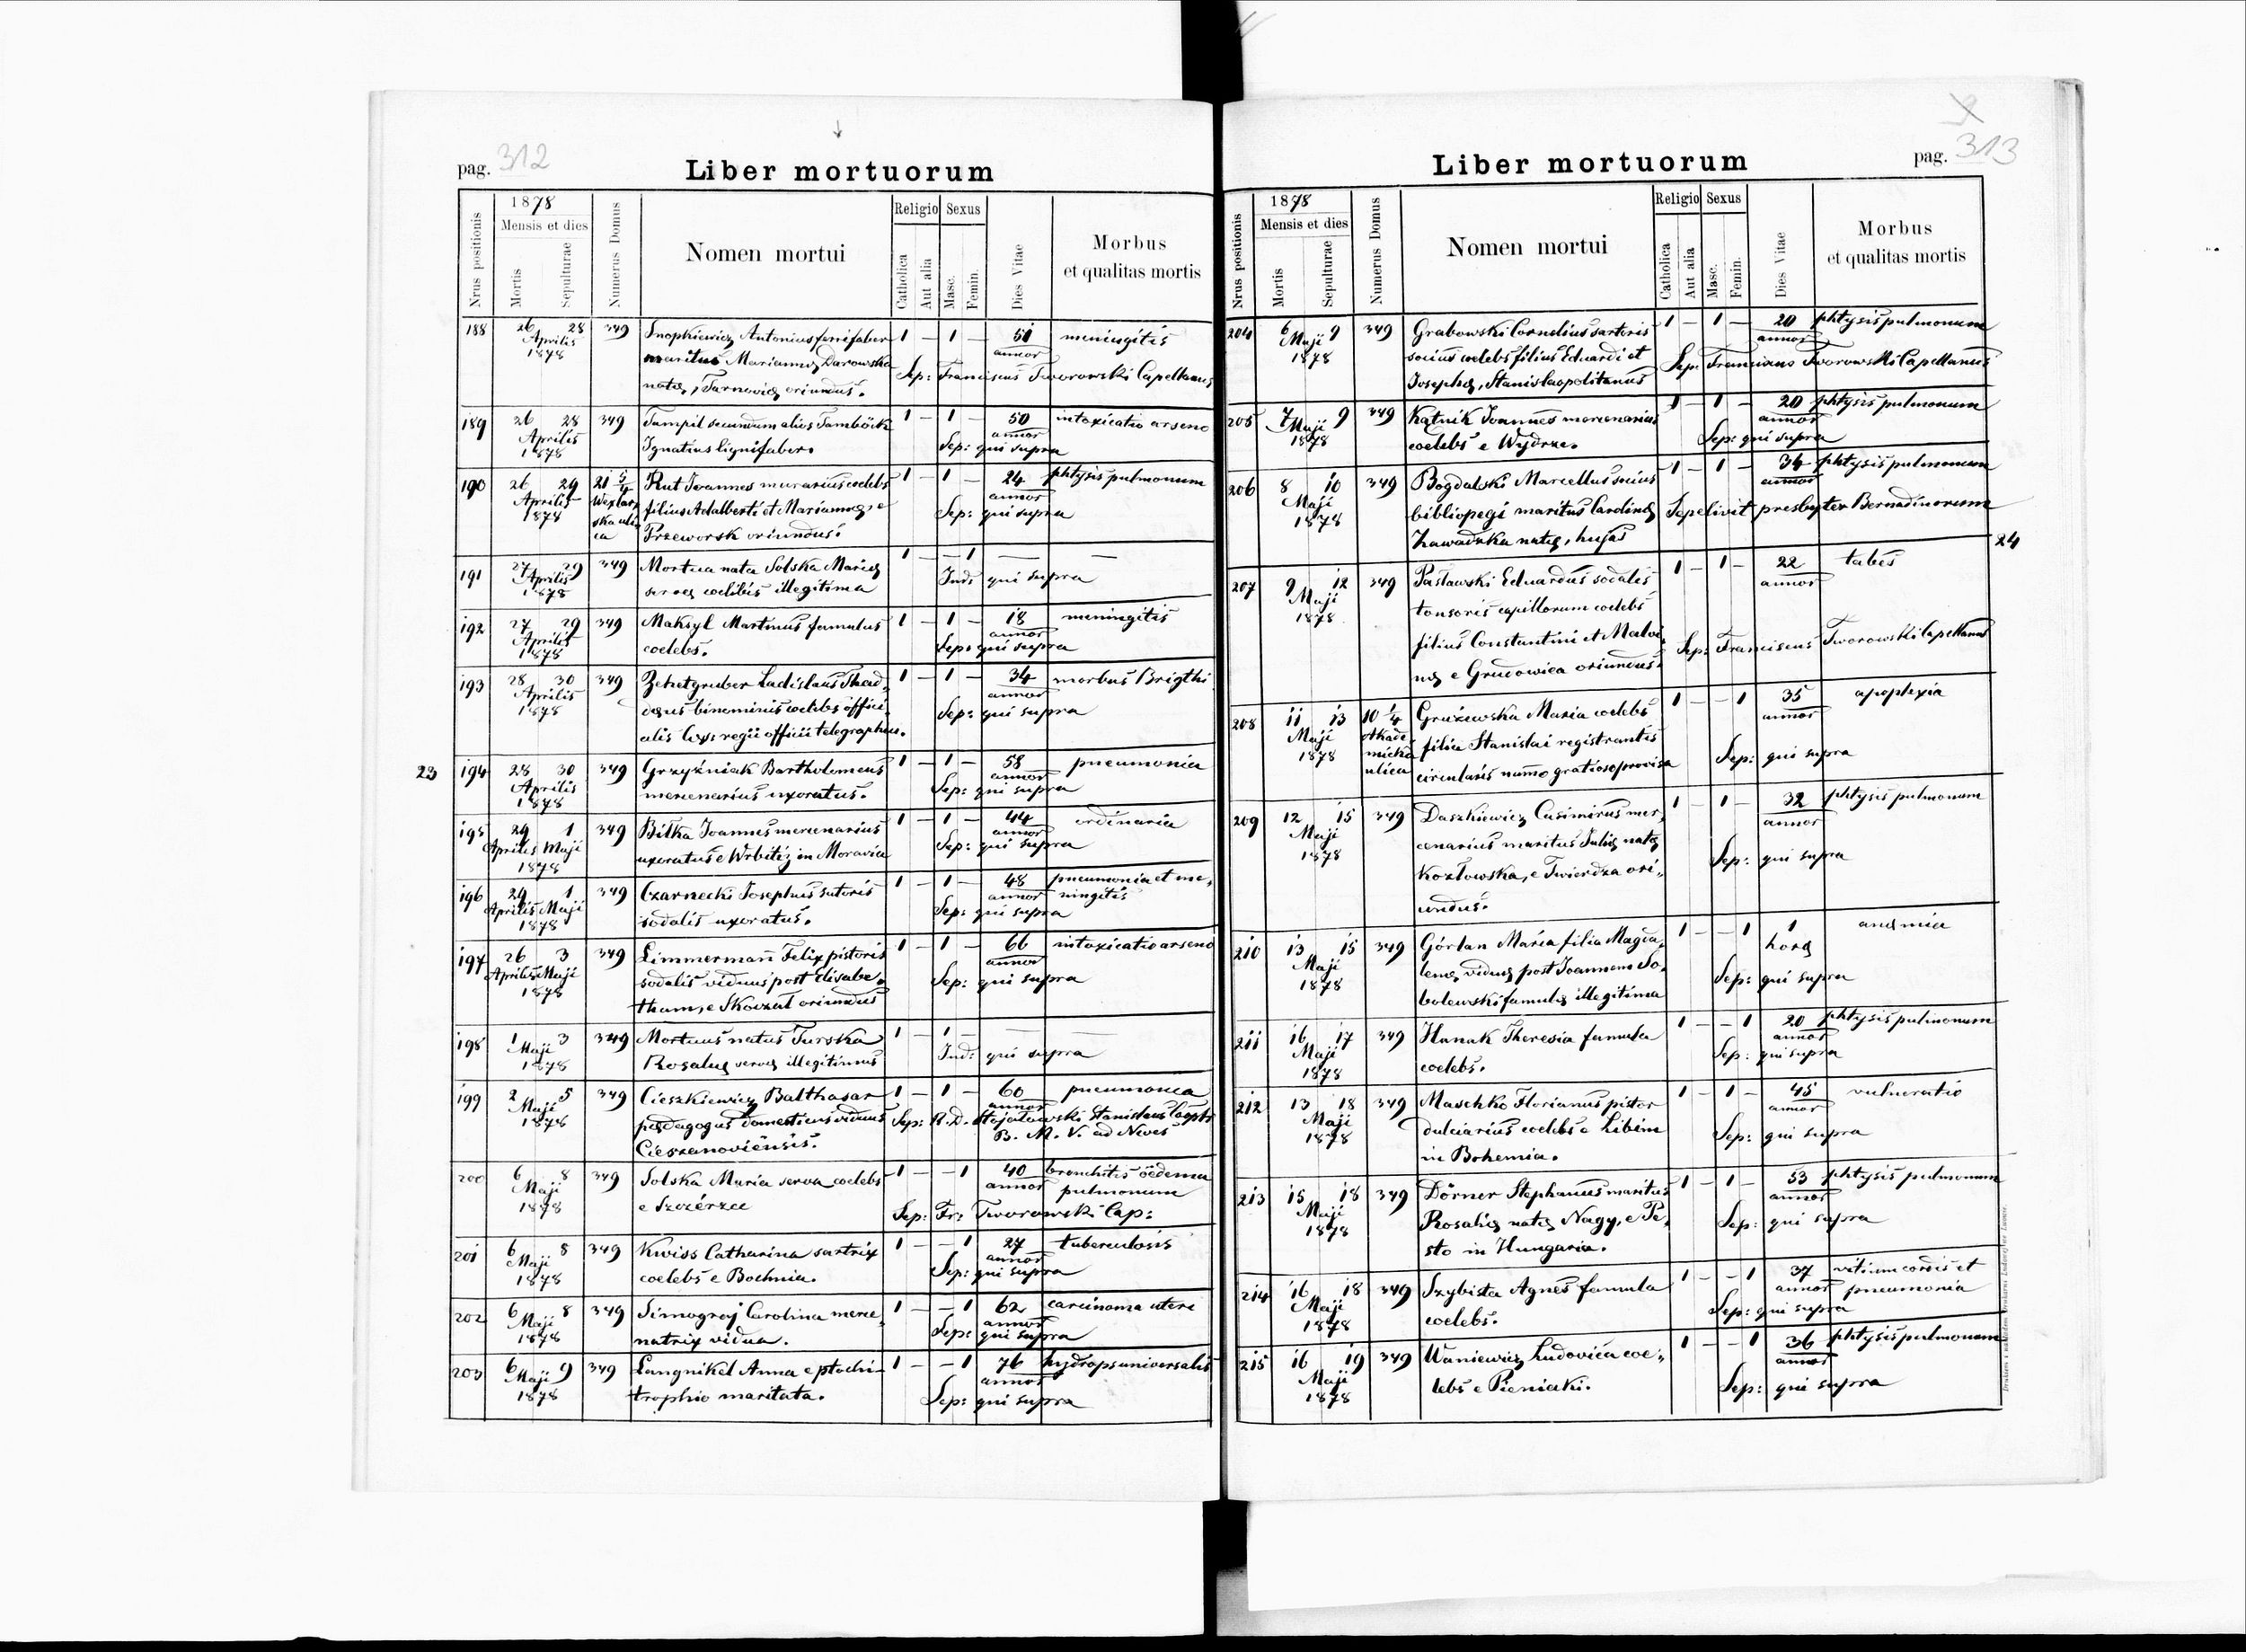 pag. 312
Liber mortuorum
Nrus positionis
1878
Mensis et dies
Mortis
Sepulturae
Numerus Domus
Nomen mortui
Religio
Catholica
Aut alia
Sexus
Masc.
Femin.
Dies Vitae
Morbus
et qualitas mortis
188 26 28 349 Snopkiewicz Antonius ferrifaber 1 — 1 — 51 meningitis
Aprilis maritus Mariannę Darowska annor
1878 natę, Tarnovię oriundus. Sep: Franciscus Tworowski Capellanus
189 26 28 349 Tampil secundum alios Tamböck 1 — 1 — 50 intoxicatio arseno
Aprilis Ignatius lignifaber. annor
1878 Sep: qui supra
190 26 29 21 5/4 Rut Joannes murarius coelebs 1 — 1 — 24 phtysis pulmonum
Aprilis filius Adalberti et Mariannę, e annor
1878 ska uli= Przeworsk oriundus. Sep: qui supra
ca
191 27 29 349 Mortua nata Solska Marię 1 — — 1 — —
Aprilis servę coelibis illegitima Ind: qui supra
1878
192 27 29 349 Maksyl Martinus famulus 1 — 1 — 18 meningitis
Aprilis coelebs. annor
1878 Sep: qui supra
193 28 30 349 Zehetgruber Ladislaus Thad= 1 — 1 — 34 morbus Brigthi
Aprilis deus binominis coelebs offici= annor
1878 alis regii officii telegraphici. Sep: qui supra
23 194 28 30 349 Grzyźniak Bartholomeus 1 — 1 — 58 pneumonia
Aprilis mercenarius uxoratus. annor
1878 Sep: qui supra
195 29 1 349 Bilka Joannes mercenarius 1 — 1 — 44 ordinaria
Aprilis Maji uxoratus e Wrbitéz in Moravia annor
1878 Sep: qui supra
196 29 1 349 Czarnecki Josephus sutoris 1 — 1 — 48 pneumonia et me=
Aprilis Maji sodalis uxoratus. annor ningitis
1878 Sep: qui supra
197 26 3 349 Limmermann Felix pistoris 1 — 1 — 66 intoxicatio arseno
Aprilis Maji sodalis viduus post Elisabe= annor
1878 tham, e oriundus Sep: qui supra
198 1 3 349 Mortuus natus Turska 1 — 1 — — —
Maji Rosalię servę illegitimus Ind: qui supra
1878
199 2 5 349 Cieszkiewicz Balthasar 1 — 1 — 60 pneumonia
Maji pędagogus domesticus viduus annor
1878 Cieszanoviensis. Sep: A. D. Stojałowski Stanislaus
B. M. V. ad Nives
200 6 8 349 Solska Maria serva coelebs 1 — — 1 40 bronchitis öedema
Maji e Szczérzec annor pulmonum
1878 Sep: Fr: Tworowski Cap:
201 6 8 349 Kwiss Catharina sartrix 1 — — 1 27 tuberculosis
Maji coelebs e Bochnia. annor
1878 Sep: qui supra
202 6 8 349 Simograj Carolina merce= 1 — — 1 62 carcinoma uteri
Maji natrix vidua. annor
1878 Sep: qui supra
203 6 9 349 Langnikel Anna e ptochi= 1 — — 1 76 hydrops universalis
Maji trophio maritata. annor
1878 Sep: qui supra
pag. 313
Liber mortuorum
Nrus positionis
1878
Mensis et dies
Mortis
Sepulturae
Numerus Domus
Nomen mortui
Religio
Catholica
Aut alia
Sexus
Masc.
Femin.
Dies Vitae
Morbus
et qualitas mortis
204 6 9 349 Grabowski Cornelius sartoris 1 — 1 — 20 phtysis pulmonum
Maji socius coelebs filius Eduardi et annor
1878 Josephę, Stanislaopolitanus Sep: Franciscus Tworowski Capellanus
205 7 9 349 Kątnik Joannes mercenarius 1 — 1 — 20 phtysis pulmonum
Maji coelebs e Wydrze. annor
1878 Sep: qui supra
206 8 10 349 Bogdalski Marcellus socius 1 — 1 — 34 phtysis pulmonum
Maji bibliopegi maritus Carolinę annor
1878 Zawadzka natę, hujas Sepelivit presbyter Bernadinorum
24
207 9 12 349 Pasławski Eduardus sodalis 1 — 1 — 22 tabes
Maji tonsoris capillorum coelebs annor
1878 filius Constantini et Malvi=
nę e Grudowica oriundus. Sep: Franciscus Tworowski Capellanus
208 11 13 10 1/4 Gruźewska Maria coelebs 1 — — 1 35 apoplexia
Maji Akade= filia Stanislai registrantis annor
1878 micka circularis nunno gratiosoprovisa Sep: qui supra
ulica
209 12 15 349 Daszkiewicz Casimirus mer= 1 — 1 — 32 phtysis pulmonum
Maji cenarius maritus Julię natę annor
1878 Kozłowska, e Twierdza ori= Sep: qui supra
undus.
210 13 15 349 Górlan Maria filia Magda= 1 — — 1 1 anęmia
Maji lenę viduę post Joannem So= horę
1878 bolewski famulę illegitima Sep: qui supra
211 16 17 349 Hanak Theresia famula 1 — — 1 20 phtysis pulmonum
Maji coelebs. annor
1878 Sep: qui supra
212 13 18 349 Maschko Florianus pistor 1 — 1 — 45 vulneratio
Maji dulciarius coelebs e Libém annor
1878 in Bohemia. Sep: qui supra
213 15 18 349 Dörner Stephanus maritus 1 — 1 — 53 phtysis pulmonum
Maji Rosalię natę Nagy, e Pe= annor
1878 sto in Hungaria. Sep: qui supra
214 16 18 349 Szybista Agnes famula 1 — — 1 37 vitium cordis et
Maji coelebs. annor pneumonia
1878 Sep: qui supra
215 16 19 349 Waniewicz Ludovica coe= 1 — — 1 36 phtysis pulmonum
Maji lebs e Pieniaki. annor
1878 Sep: qui supra